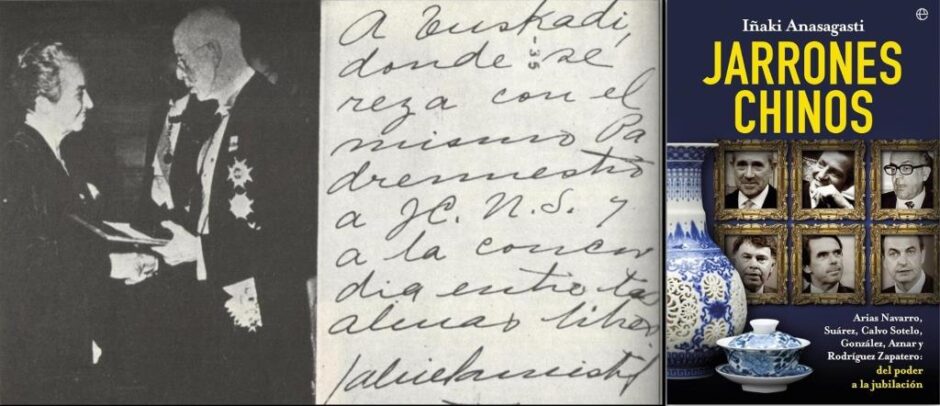 A Euskadi,
donde se
reza con el
mismo Pa
drenuestro
a JC. N.S. y
a la concor
dia entre las
almas libres
Gabriela Mistral
-35
e
Iñaki Anasagasti
JARRONES
CHINOS
Arias Navarro,
Suárez, Calvo Sotelo,
González, Aznar y
Rodríguez Zapatero:
del poder
a la jubilación